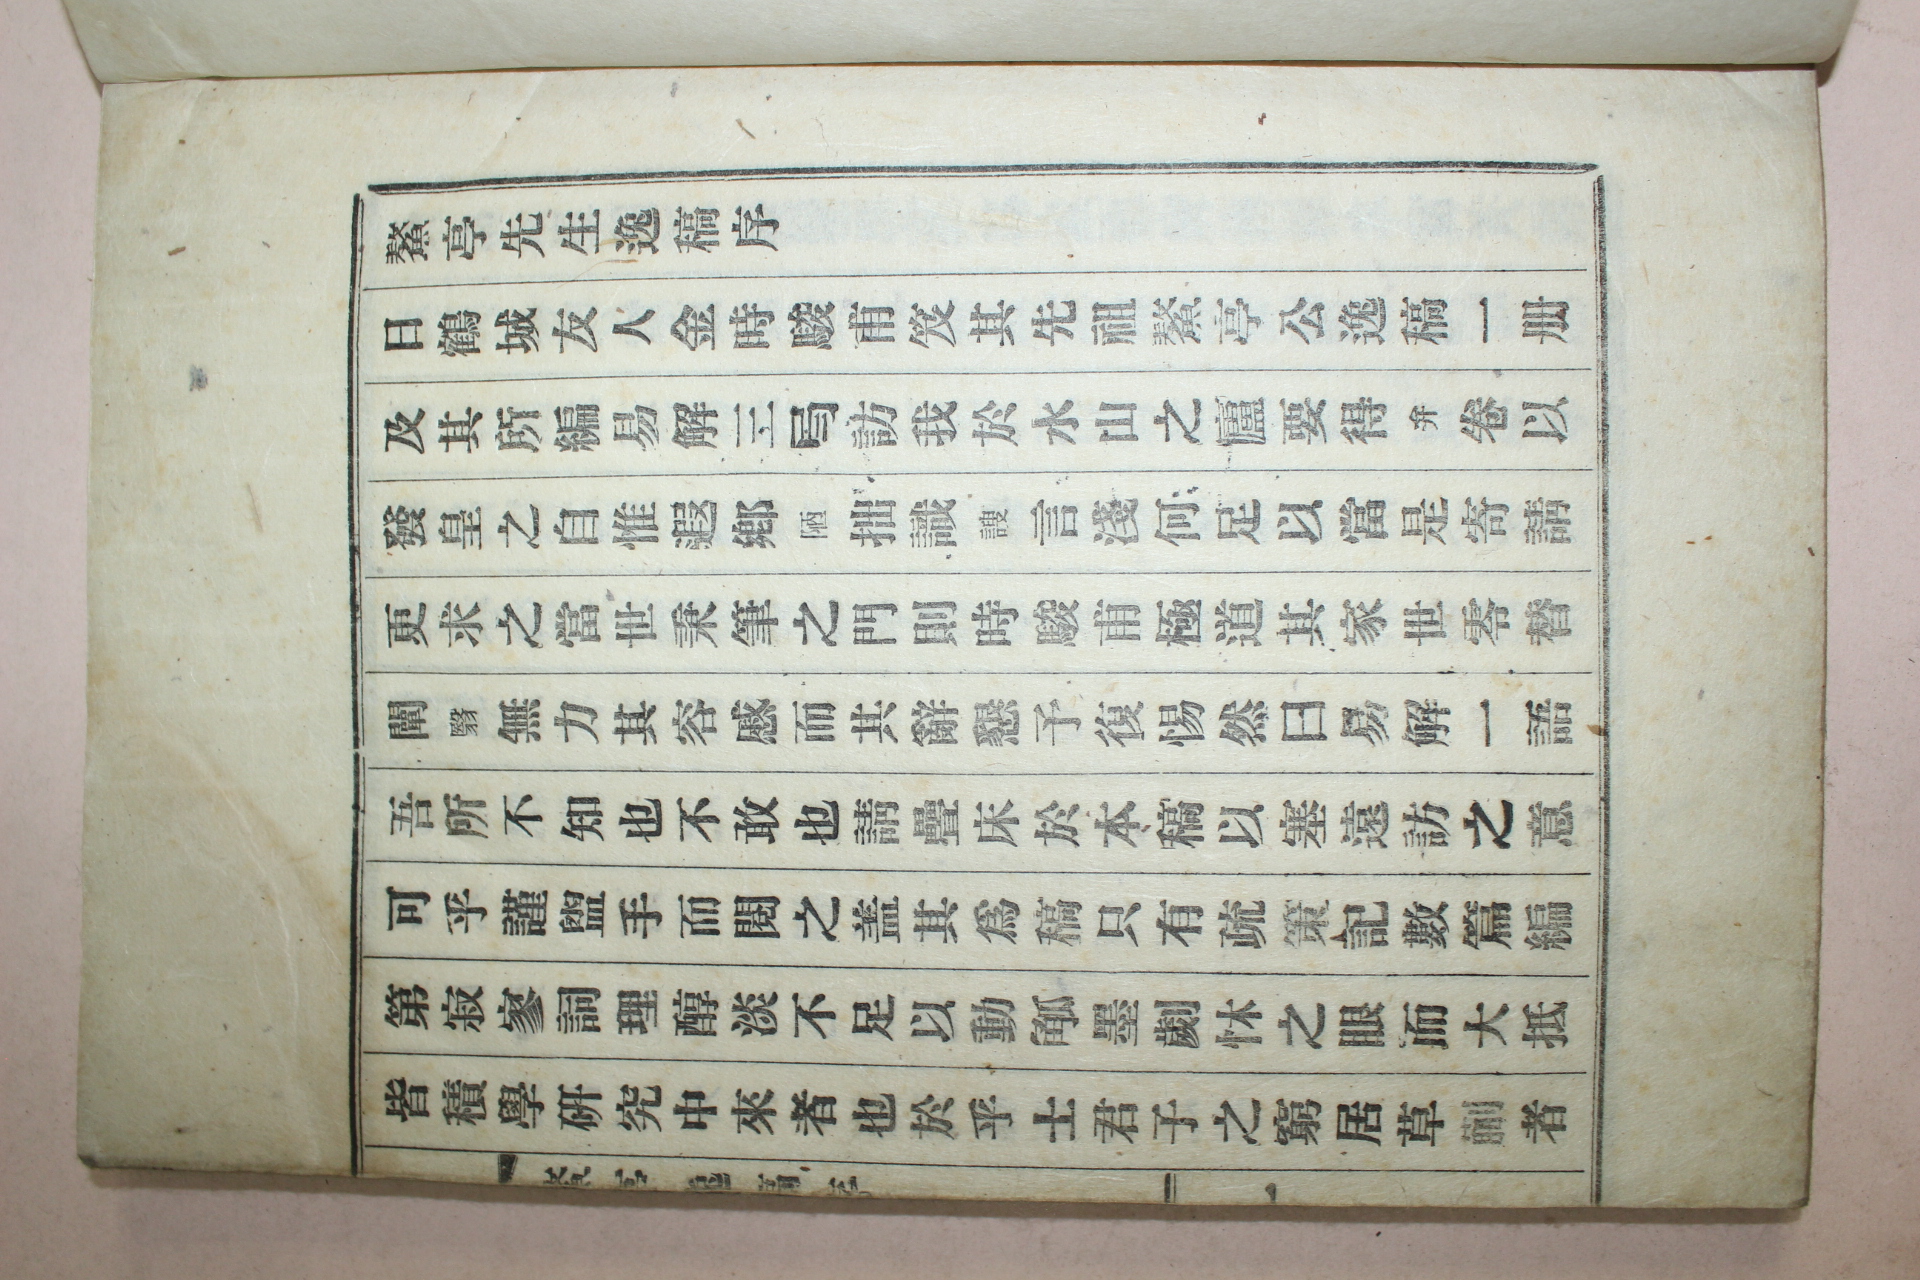 鰲亭先生逸稿序
日鶴城友人金時駿甫笈其先祖鰲亭公逸稿一册
及其所編易解三局訪我於水山之廬要得弁卷以
發皇之自惟遐鄉陋拙識謏言淺何足以當是寄請
更求之當世秉筆之門則時駿甫極道其家世零替
闡翳無力其容慼而其辭懇予復惕然曰易解一語
吾所不知也不敢也請疊床於本稿以塞遠訪之意
可乎謹盥手而閱之盖其爲稿只有疏策記數篇編
第寂寥詞理醇淡不足以動觚墨劌怵之眼而大抵
皆積學硏究中來者也於乎士君子之窮居草萴者